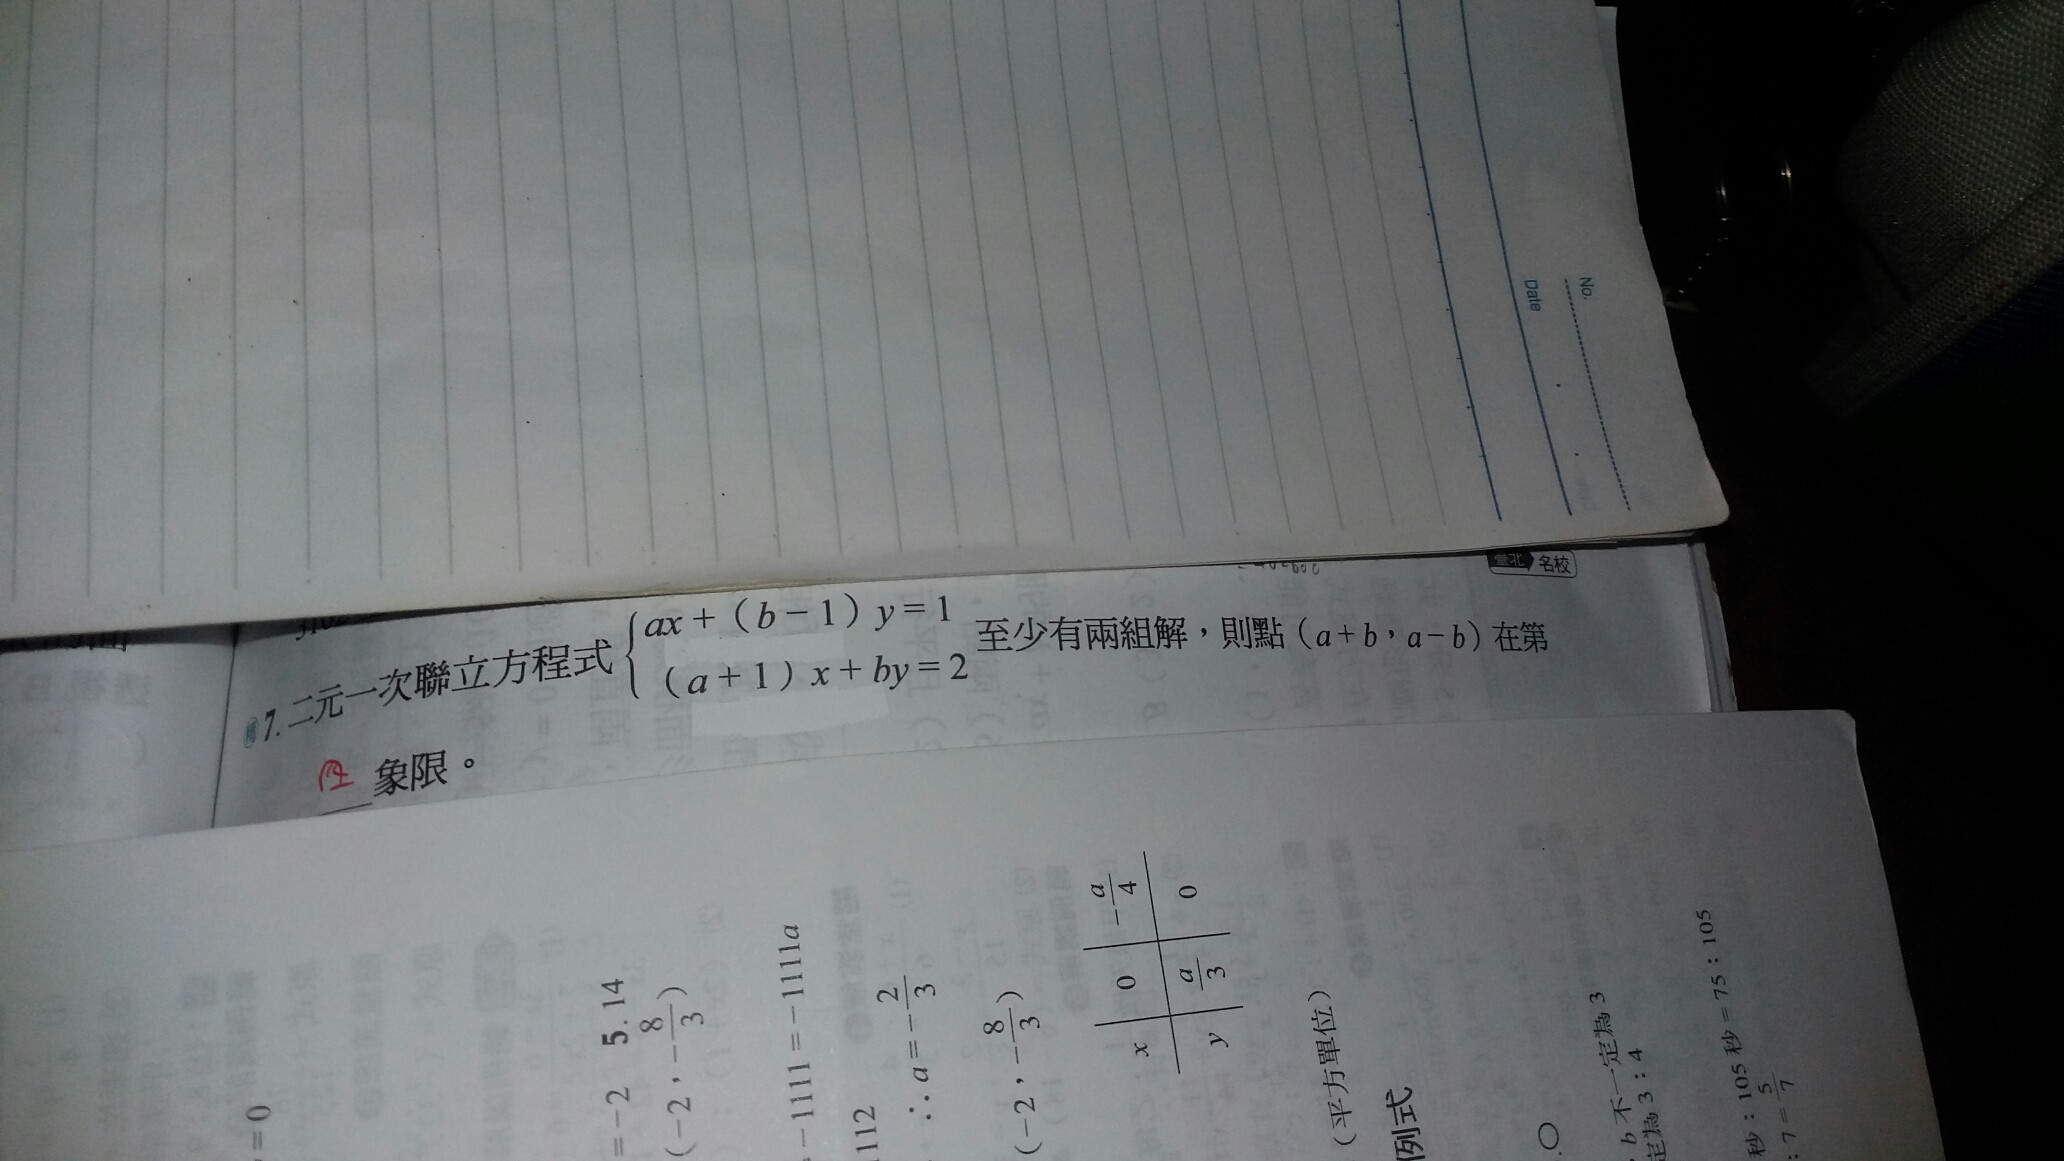 No.
Date
名校
7. 二元一次聯立方程式 { ax + (b − 1) y = 1
(a + 1) x + by = 2 至少有兩組解，則點 (a + b，a − b) 在第
四 象限。
= 0
= −2 5. 14
(−2，−8/3)
−1111 = −1111a
1112
∴ a = −2/3
(−2，−8/3)
x 0 −a/4
y a/3 0
(平方單位)
例式
b 不一定為 3
定為 3：4
秒：105 秒 = 75：105
：7 = 5/7